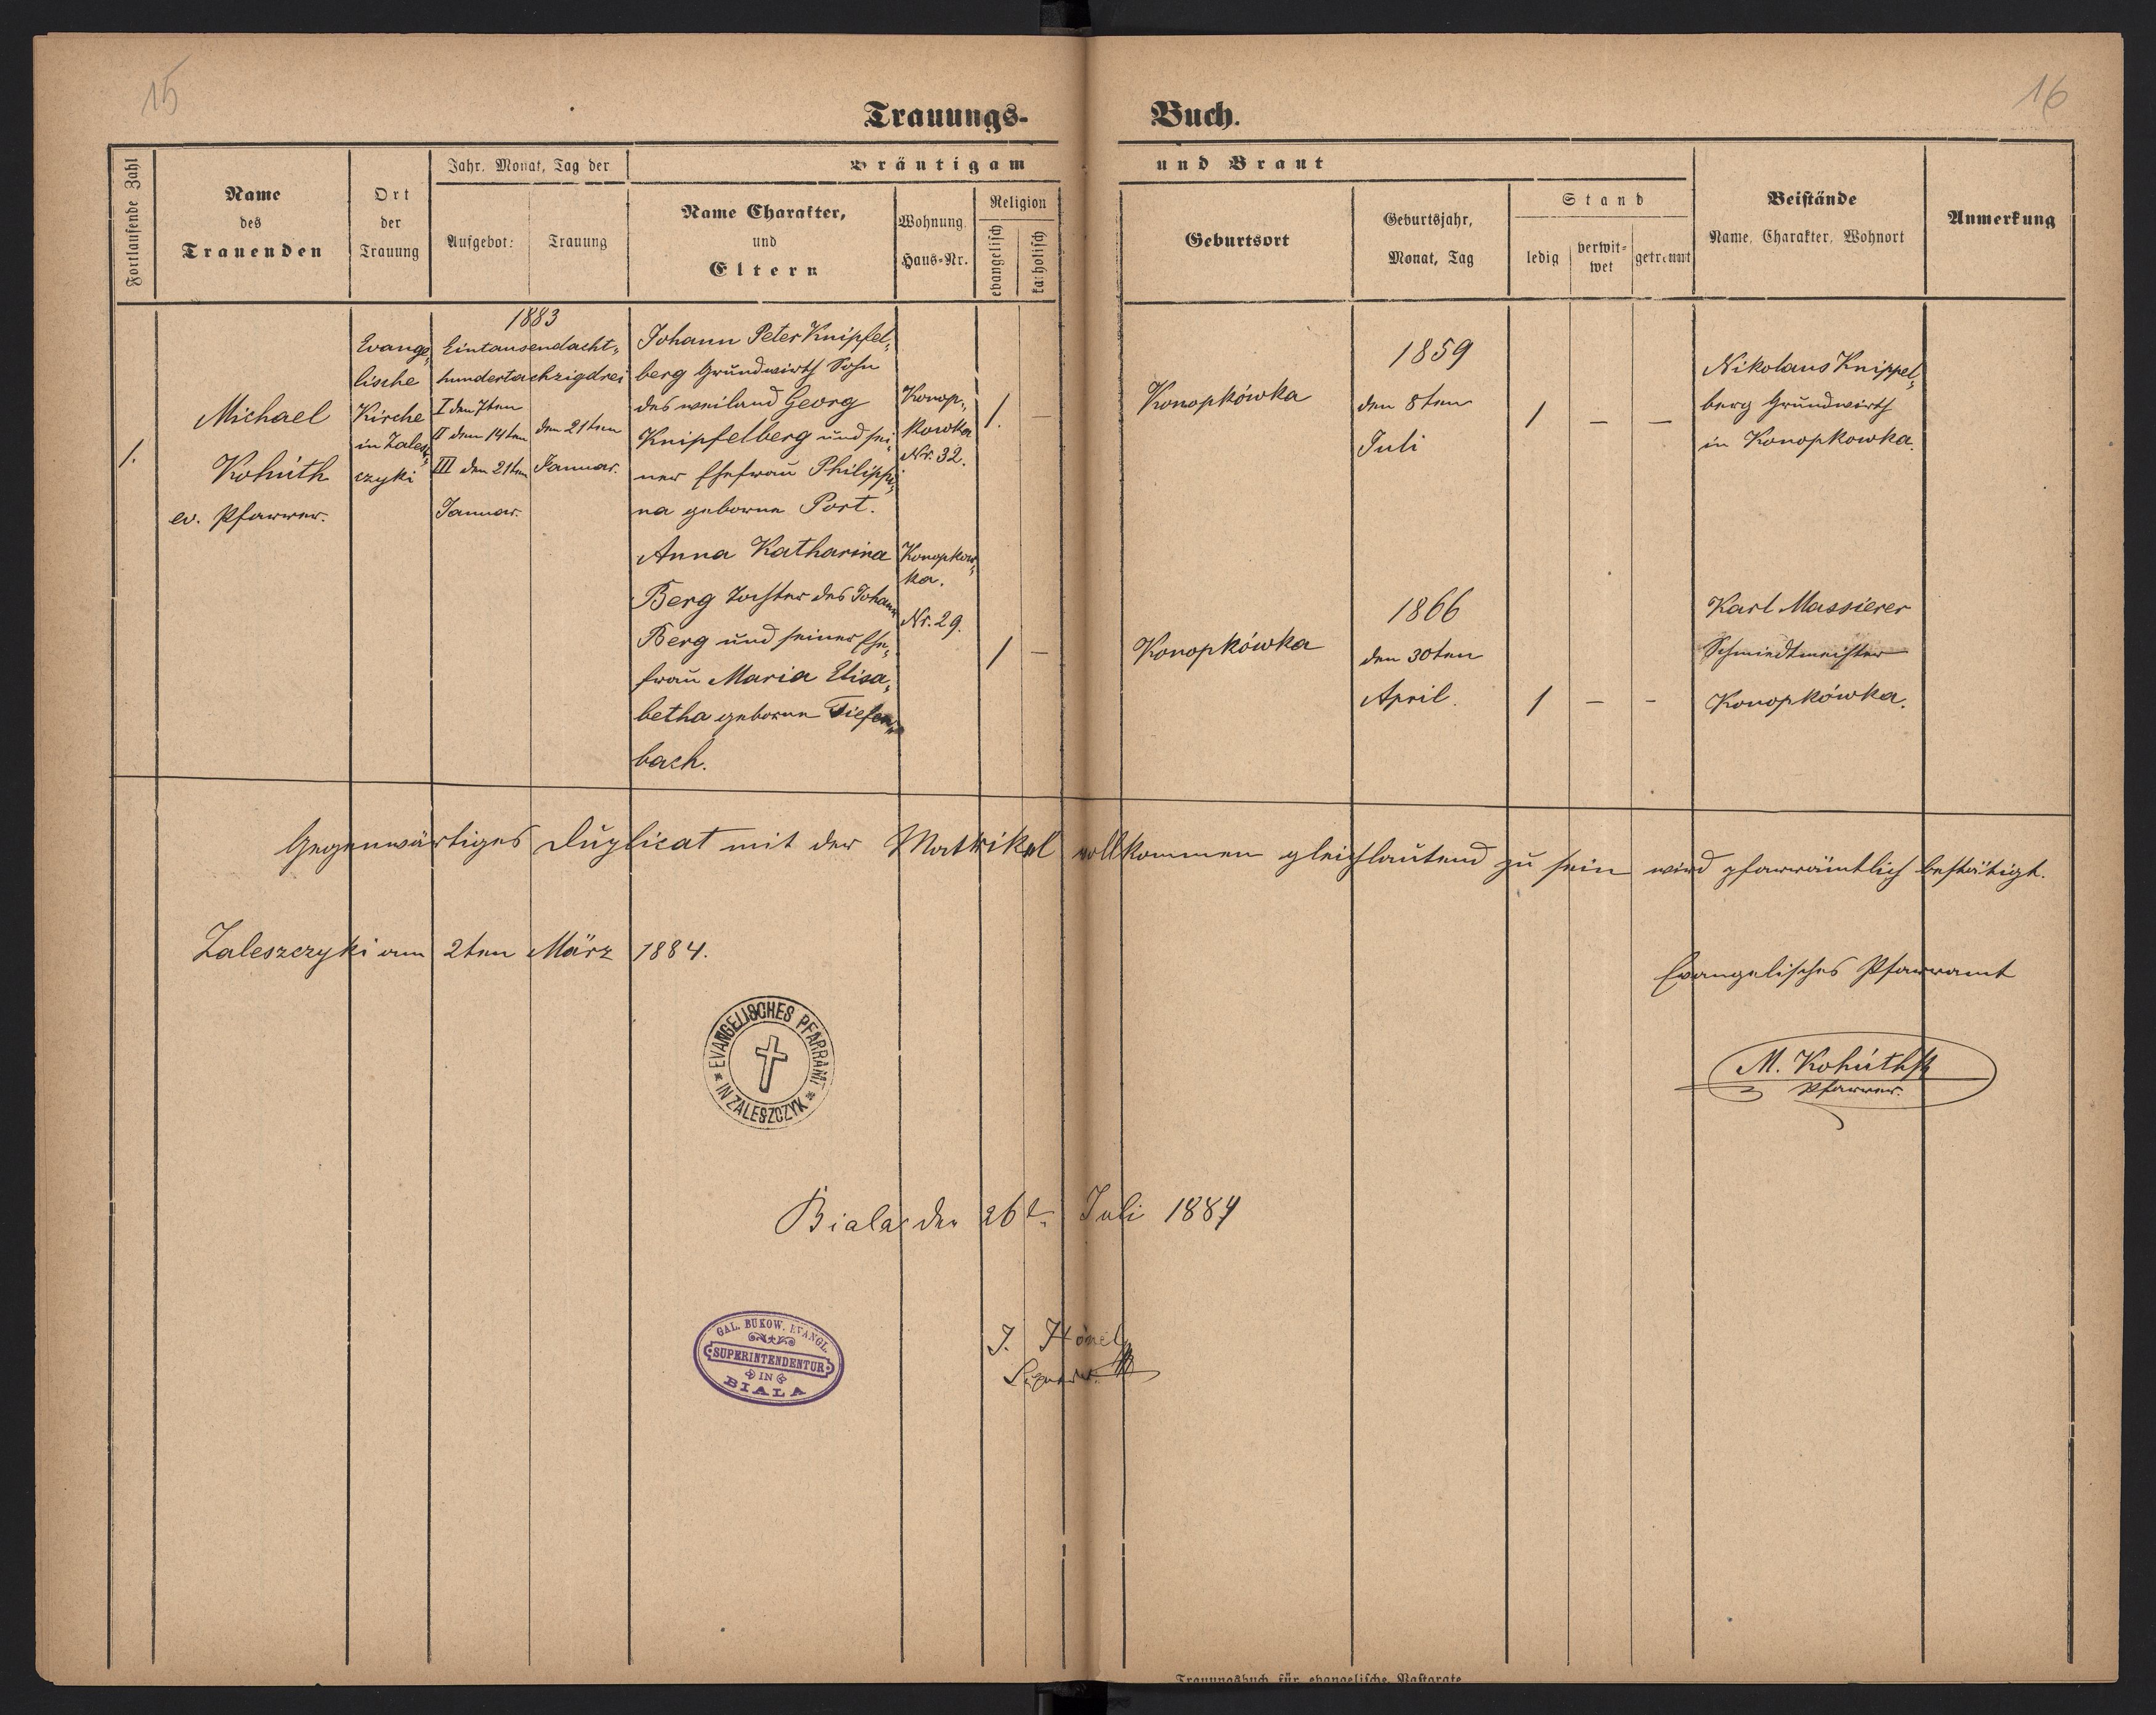 15
16
Trauungs-
Buch.
Fortlaufende Zahl
Name
des
Trauenden
Ort
der
Trauung
Jahr. Monat, Tag der
Aufgebot:
Trauung
Bräutigam
und Braut
Name Charakter,
und
Eltern
Wohnung
Haus-Nr.
Religion
evangelisch
katholisch
Geburtsort
Geburtsjahr,
Monat, Tag
Stand
ledig
verwit-
wet
getrennt
Beistände
Name, Charakter, Wohnort
Anmerkung
1.
Michael
Kohúth
ev. Pfarrer.
Evange„
lische
Kirche
in Zalesz„
czyki
1883
Eintausendacht„
hundertachzigdrei
I den 7ten
II den 14ten
III den 21ten
Januar.
den 21ten
Januar.
Johann Peter Knipfel„
berg Grundwirth Sohn
des weiland Georg
Knipfelberg und sei„
ner Ehefrau Philippi„
na geborne Port.
Konop„
kowka
Nr. 32.
1. —
Konopkówka
1859
den 8ten
Juli
1 — —
Nikolaus Knippel„
berg Grundwirth
in Konopkowka.
Anna Katharina
Berg Tochter des Johann
Berg und seiner Ehe„
frau Maria Elisa„
betha geborne Tiefen„
bach.
Konopkow„
ka.
Nr. 29.
1 —
Konopkówka
1866
den 30ten
April.
1 — -
Karl Massierer
Schmiedtmeister
Konopkówka.
Gegenwärtiges Duplicat mit der Matrikel vollkommen gleichlautend zu sein wird pfarrämtlich bestätigt.
Zaleszczyki am 2ten März 1884.
Evangelisches Pfarramt
EVANGELISCHES PFARRAMT
IN ZALESZCZYK
M. Kohúth
Pfarrer.
Biala den 26t. Juli 1884
GAL. BUKOW. EVANGL.
SUPERINTENDENTUR
IN
BIALA
J. Hönel
Trauungsbuch für evangelische Pastorate